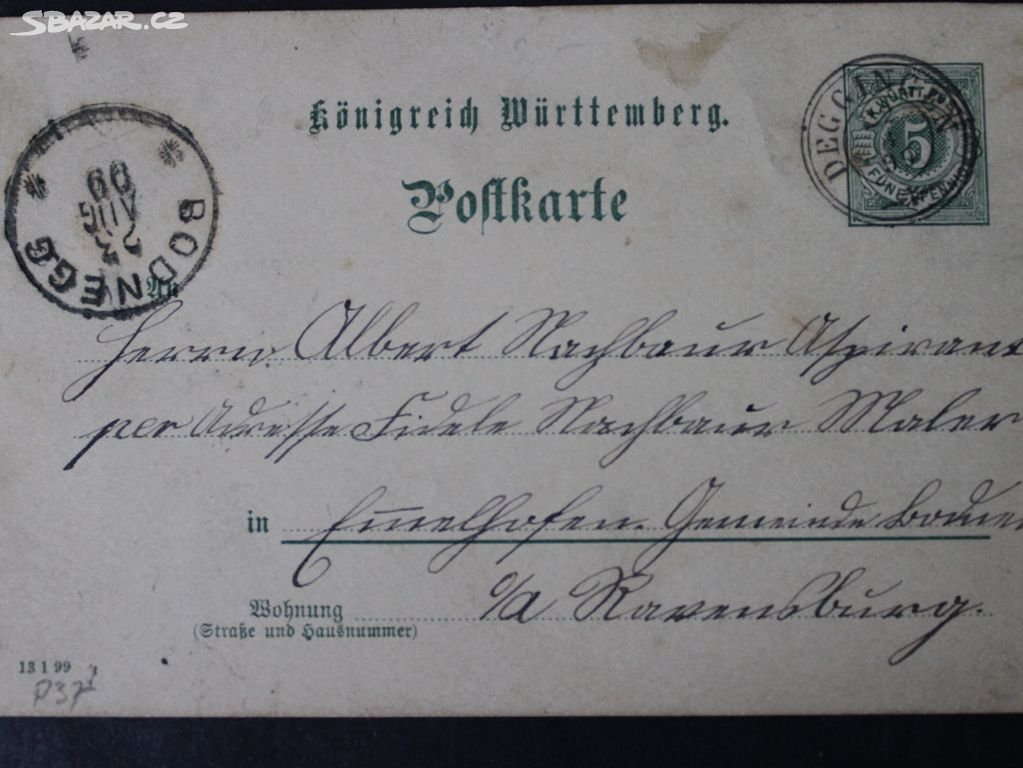 SBAZAR.CZ
Königreich Württemberg.
Postkarte
DEGGINGEN
K. WÜRTT. POST
5
FÜNF PFENNIG
BODNEGG
2 AUG 99
An
Herrn Albert Nachbaur Aspirant
per Adresse Fidele Nachbaur Maler
in Emmelhofen. Gemeinde Bodne
o/a Ravensburg.
Wohnung
(Straße und Hausnummer)
13 1 99
P37